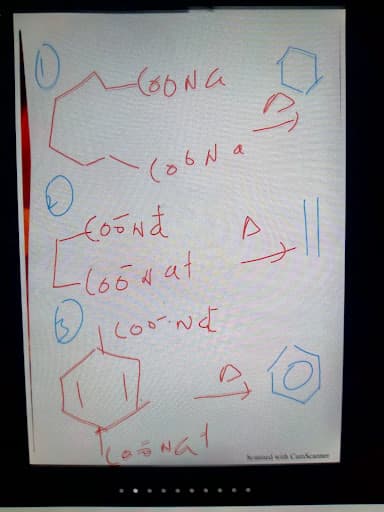 1
COONa
Δ
COONa
2
COO⁻Na⁺
Δ
COO⁻Na⁺
3
COO⁻Na⁺
Δ
COO⁻Na⁺
Scanned with CamScanner